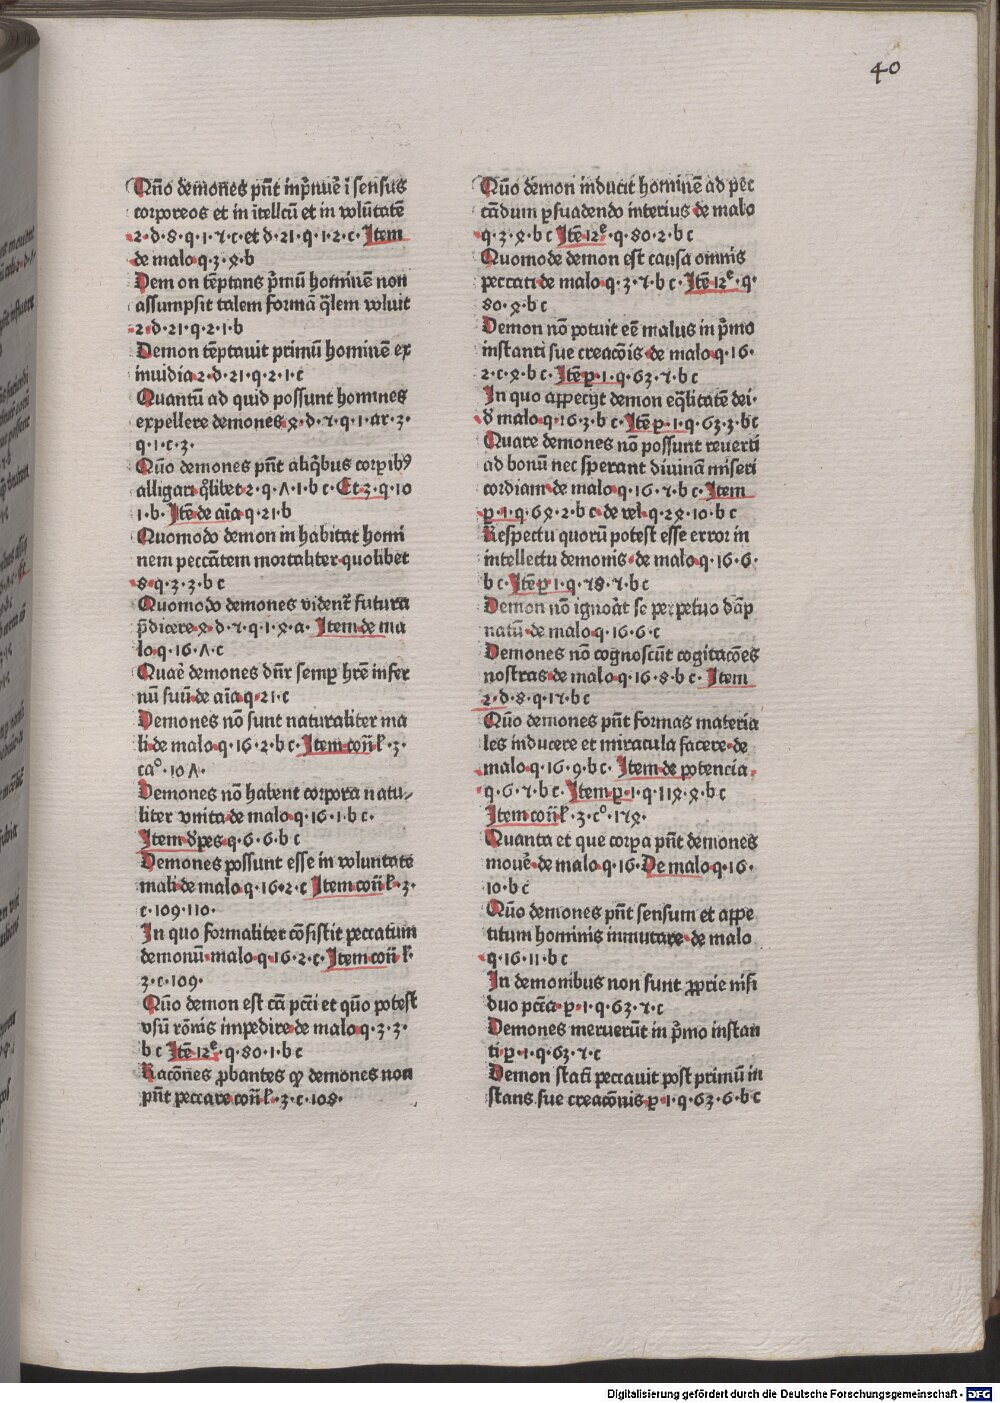 40
Quō demones pn̄t inp̄nuē ī sensus
corporeos et in ītellcū et in volūtatē
2·d·8·q·1·7·c·et d·21·q·1·2·c· Item
de malo q·3·4·b
Dem on tēptans p̄mū hominē non
assumpsit talem formā q̄lem voluit
2·d·21·q·2·1·b
Demon tēptauit primū hominē ex
inuidia 2·d·21·q·2·1·c
Quantū ad quid possunt homines
expellere demones 4·d·7·q·1·ar·3·
q·1·c·3·
Quō demones pn̄t aliq̄bus corꝑibꝰ
alligari q̊libet 2·q·Λ·1·b c· Et 3·q·10
1·b· Itē de aīa q·21·b
Quomodo demon in habitat homi
nem peccātem mortaliter quolibet
8·q·3·3·b c
Quomodo demones vident᷑ futura
p̄dicere 4·d·7·q·1·4·a· Item de ma
lo q·16·Λ·c
Quaē demones dn̄r semꝑ hr̄e infer
nū suū de aīa q·21·c
Demones nō sunt naturaliter ma
li de malo q·16·2·b c· Item con̄ ł· 3·
caº·10Λ·
Demones nō habent corpora natu⸗
liter vnita de malo q·16·1·b c·
Item d̄pēs q·6·6·b c
Demones possunt esse in voluntate
mali de malo q·16·2·c Item con̄ ł· 3·
c·109·110·
In quo formaliter cōsistit peccatum
demonū malo q·16·2·c· Item con̄ ł·
3·c·109·
Quō demon est cā pcc̄i et quō potest
vsū rōnis impedire de malo q·3·3·
b c Itē 12ᵉ·q·80·1·b c
Racōnes ꝓbantes qꝫ demones non
pn̄t peccare con̄ ł·3·c·108·
Quō demon inducit hominē ad pec
cādum ꝑsuadendo interius de malo
q·3·4·b c Itē 12ᵉ·q·80·2·b c
Quomodo demon est causa omnis
peccati de malo q·3·7·b c· Itē 12ᵉ·q·
80·4·b c
Demon nō potuit eē malus in p̄mo
instanti sue creacōis de malo q·16·
2·c·4·b c· Itē ꝑ·1·q·63·7·b c
In quo appecijt demon eq̄litatē dei·
d̄ malo q·16·3·b c· Itē ꝑ·1·q·63·3·b c
Quare demones nō possunt reuerti
ad bonū nec sperant diuinā miseri
cordiam de malo q·16·7·b c· Item
ꝑ·1·q·64·2·b c· de vel̄ q·24·10·b c
Respectu quorū potest esse error in
intellectu demonis de malo q·16·6·
b c· Itē ꝑ·1·q·78·7·b c
Demon nō ignoāt se perpetuo dāp
natū de malo q·16·6·c
Demones nō cognoscūt cogitacōes
nostras de malo q·16·8·b c· Item
2·d·8·q·17·b c
Quō demones pn̄t formas materia
les inducere et miracula facere de
malo q·16·9·b c· Item de potencia·
q·6·7·b c· Item ꝑ·1·q·114·4·b c
Item con̄ ł·3·cº·174·
Quanta et que corꝑa pn̄t demones
mouē de malo q·16· De malo q·16·
10·b c
Quō demones pn̄t sensum et appe
titum hominis inmutare de malo
q·16·11·b c
In demonibus non sunt ꝓprie nisi
duo pcc̄a ꝑ·1·q·63·7·c
Demones meruerūt in p̄mo instan
ti ꝑ·1·q·63·7·c
Demon statī peccauit post primū in
stans sue creacōnis ꝑ·1·q·63·6·b c
Digitalisierung gefördert durch die Deutsche Forschungsgemeinschaft - DFG